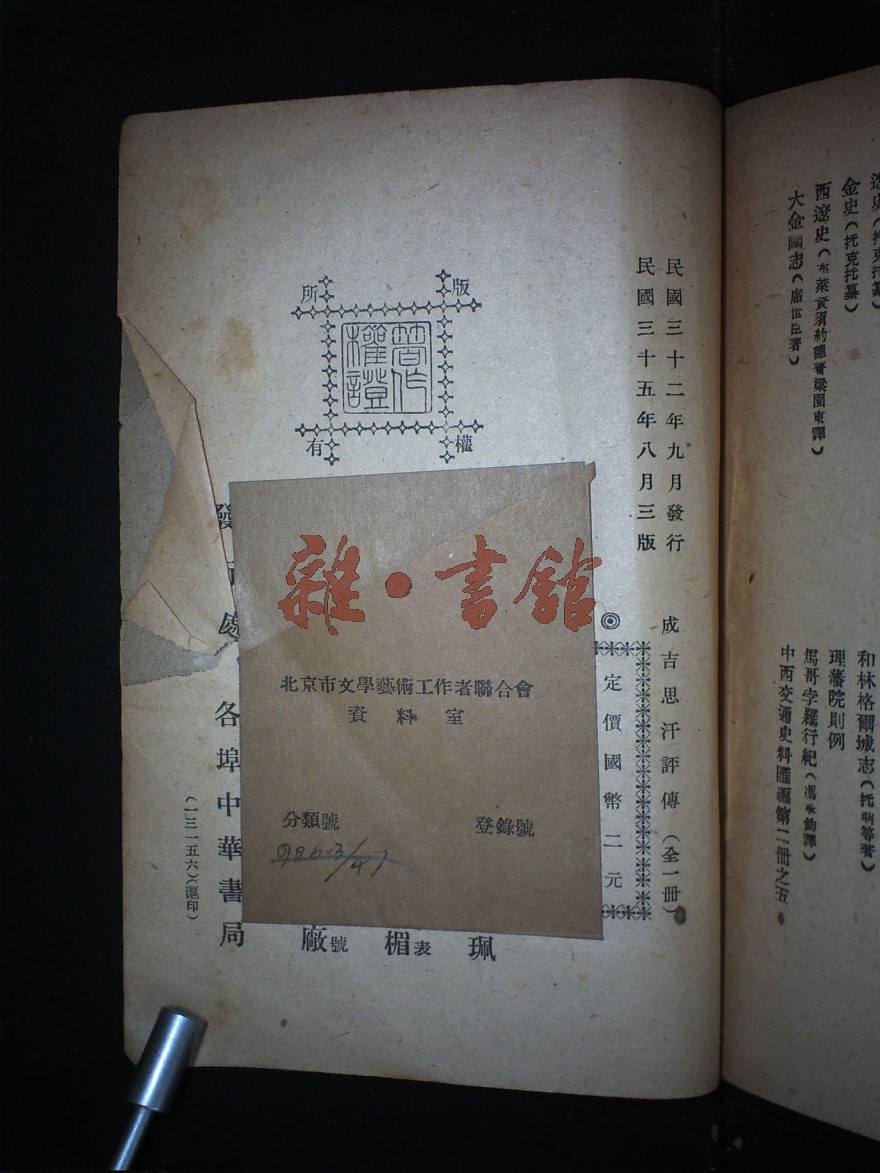 大金國志（席世臣著）
西遼史（布萊資須約德著梁園東譯）
金史（托克托纂）
遼史（托克托纂）
中西交通史料匯編第二冊之五
馬哥孛羅行紀（馮承鈞譯）
理藩院則例
和林格爾城志（托明等著）
民國三十二年九月發行
民國三十五年八月三版
成吉思汗評傳（全一冊）
定價國幣二元
版權所有
著作權證
雜·書館
北京市文學藝術工作者聯合會
資料室
分類號
登錄號
珮
楣表
廠號
發
處
各埠中華書局
（一三一五六）（滬印）